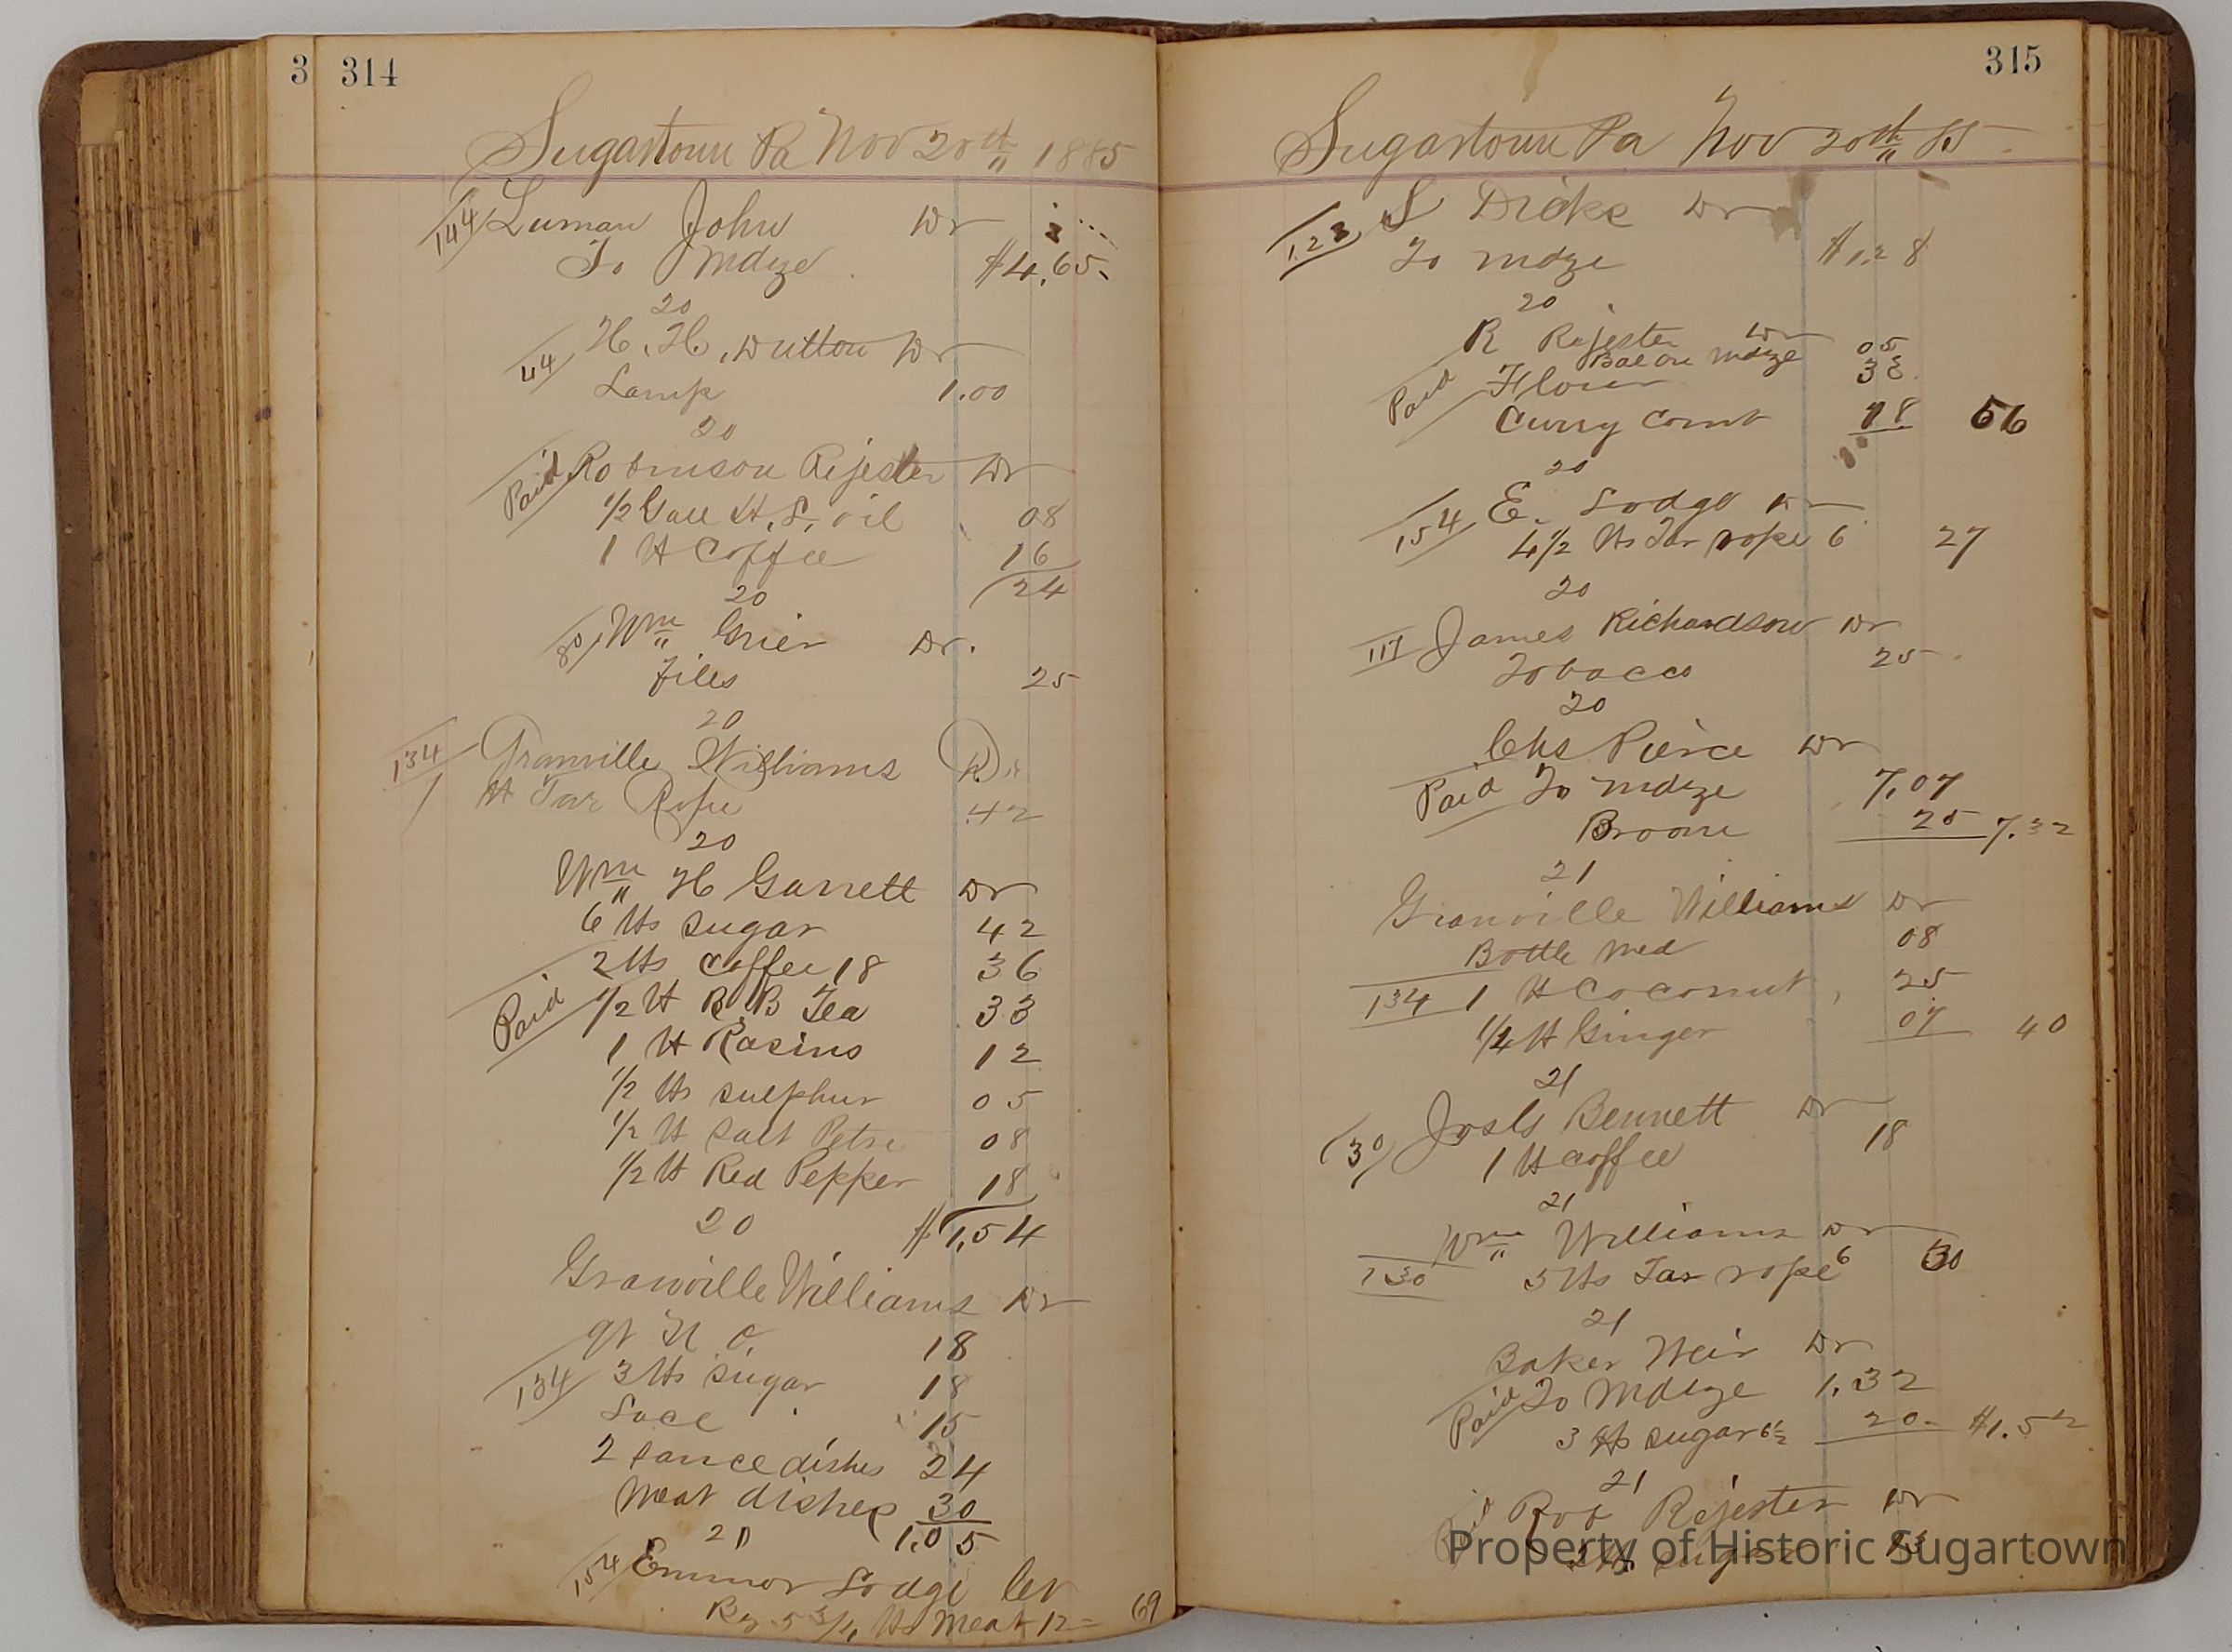 3 314
Sugartown Pa Nov 20th 1885
144 Luman John Dr
To Mdze $4.65
20
44 H. H. Dutton Dr
Lamp 1.00
20
Paid Robinson Rejester Dr
1/2 Gall H. L. oil 08
1 lb Coffee 16
24
20
80 Wm Grier Dr.
Files 25
20
134 Granville Williams Dr
1 lb Tar Rope .42
20
Wm H Garrett Dr
6 lbs sugar 42
2 lbs Coffee 18 36
Paid 1/2 lb B. B Tea 33
1 lb Rasins 12
1/2 lb sulphur 05
1/2 lb Salt Petre 08
1/2 lb Red Pepper 18
20 $1.54
Granville Williams Dr
18
134 3 lbs Sugar 18
Lace 15
2 sauce dishes 24
Meat dishes 30
20 1.05
154 Emmor Lodge Cr
By 5 3/4 lbs Meat 12 69
315
Sugartown Pa Nov 20th 85
123 S Dicke Dr
To mdze $1.28
20
R Rejester Dr
Bal on mdze 05
Paid Flour 33
Curry Comb 18 56
20
154 E. Lodge Dr
4 1/2 lbs Tar rope 6 27
20
117 James Richardson Dr
Tobacco 25
20
Chs Pierce Dr
Paid To mdze 7.07
Broom 25 7.32
21
Granville Williams Dr
Bottle med 08
134 1 lb Cocornut 25
1/4 lb Ginger 07 40
21
30 Josh Bennett Dr
1 lb Coffee 18
21
Wm Williams Dr
130 5 lbs Tar rope 6 30
21
Baker Weir Dr
Paid To Mdze 1.32
3 lbs sugar 6 1/2 20 $1.52
21
Rob Rejester Dr
2 lbs sugar 13
Property of Historic Sugartown